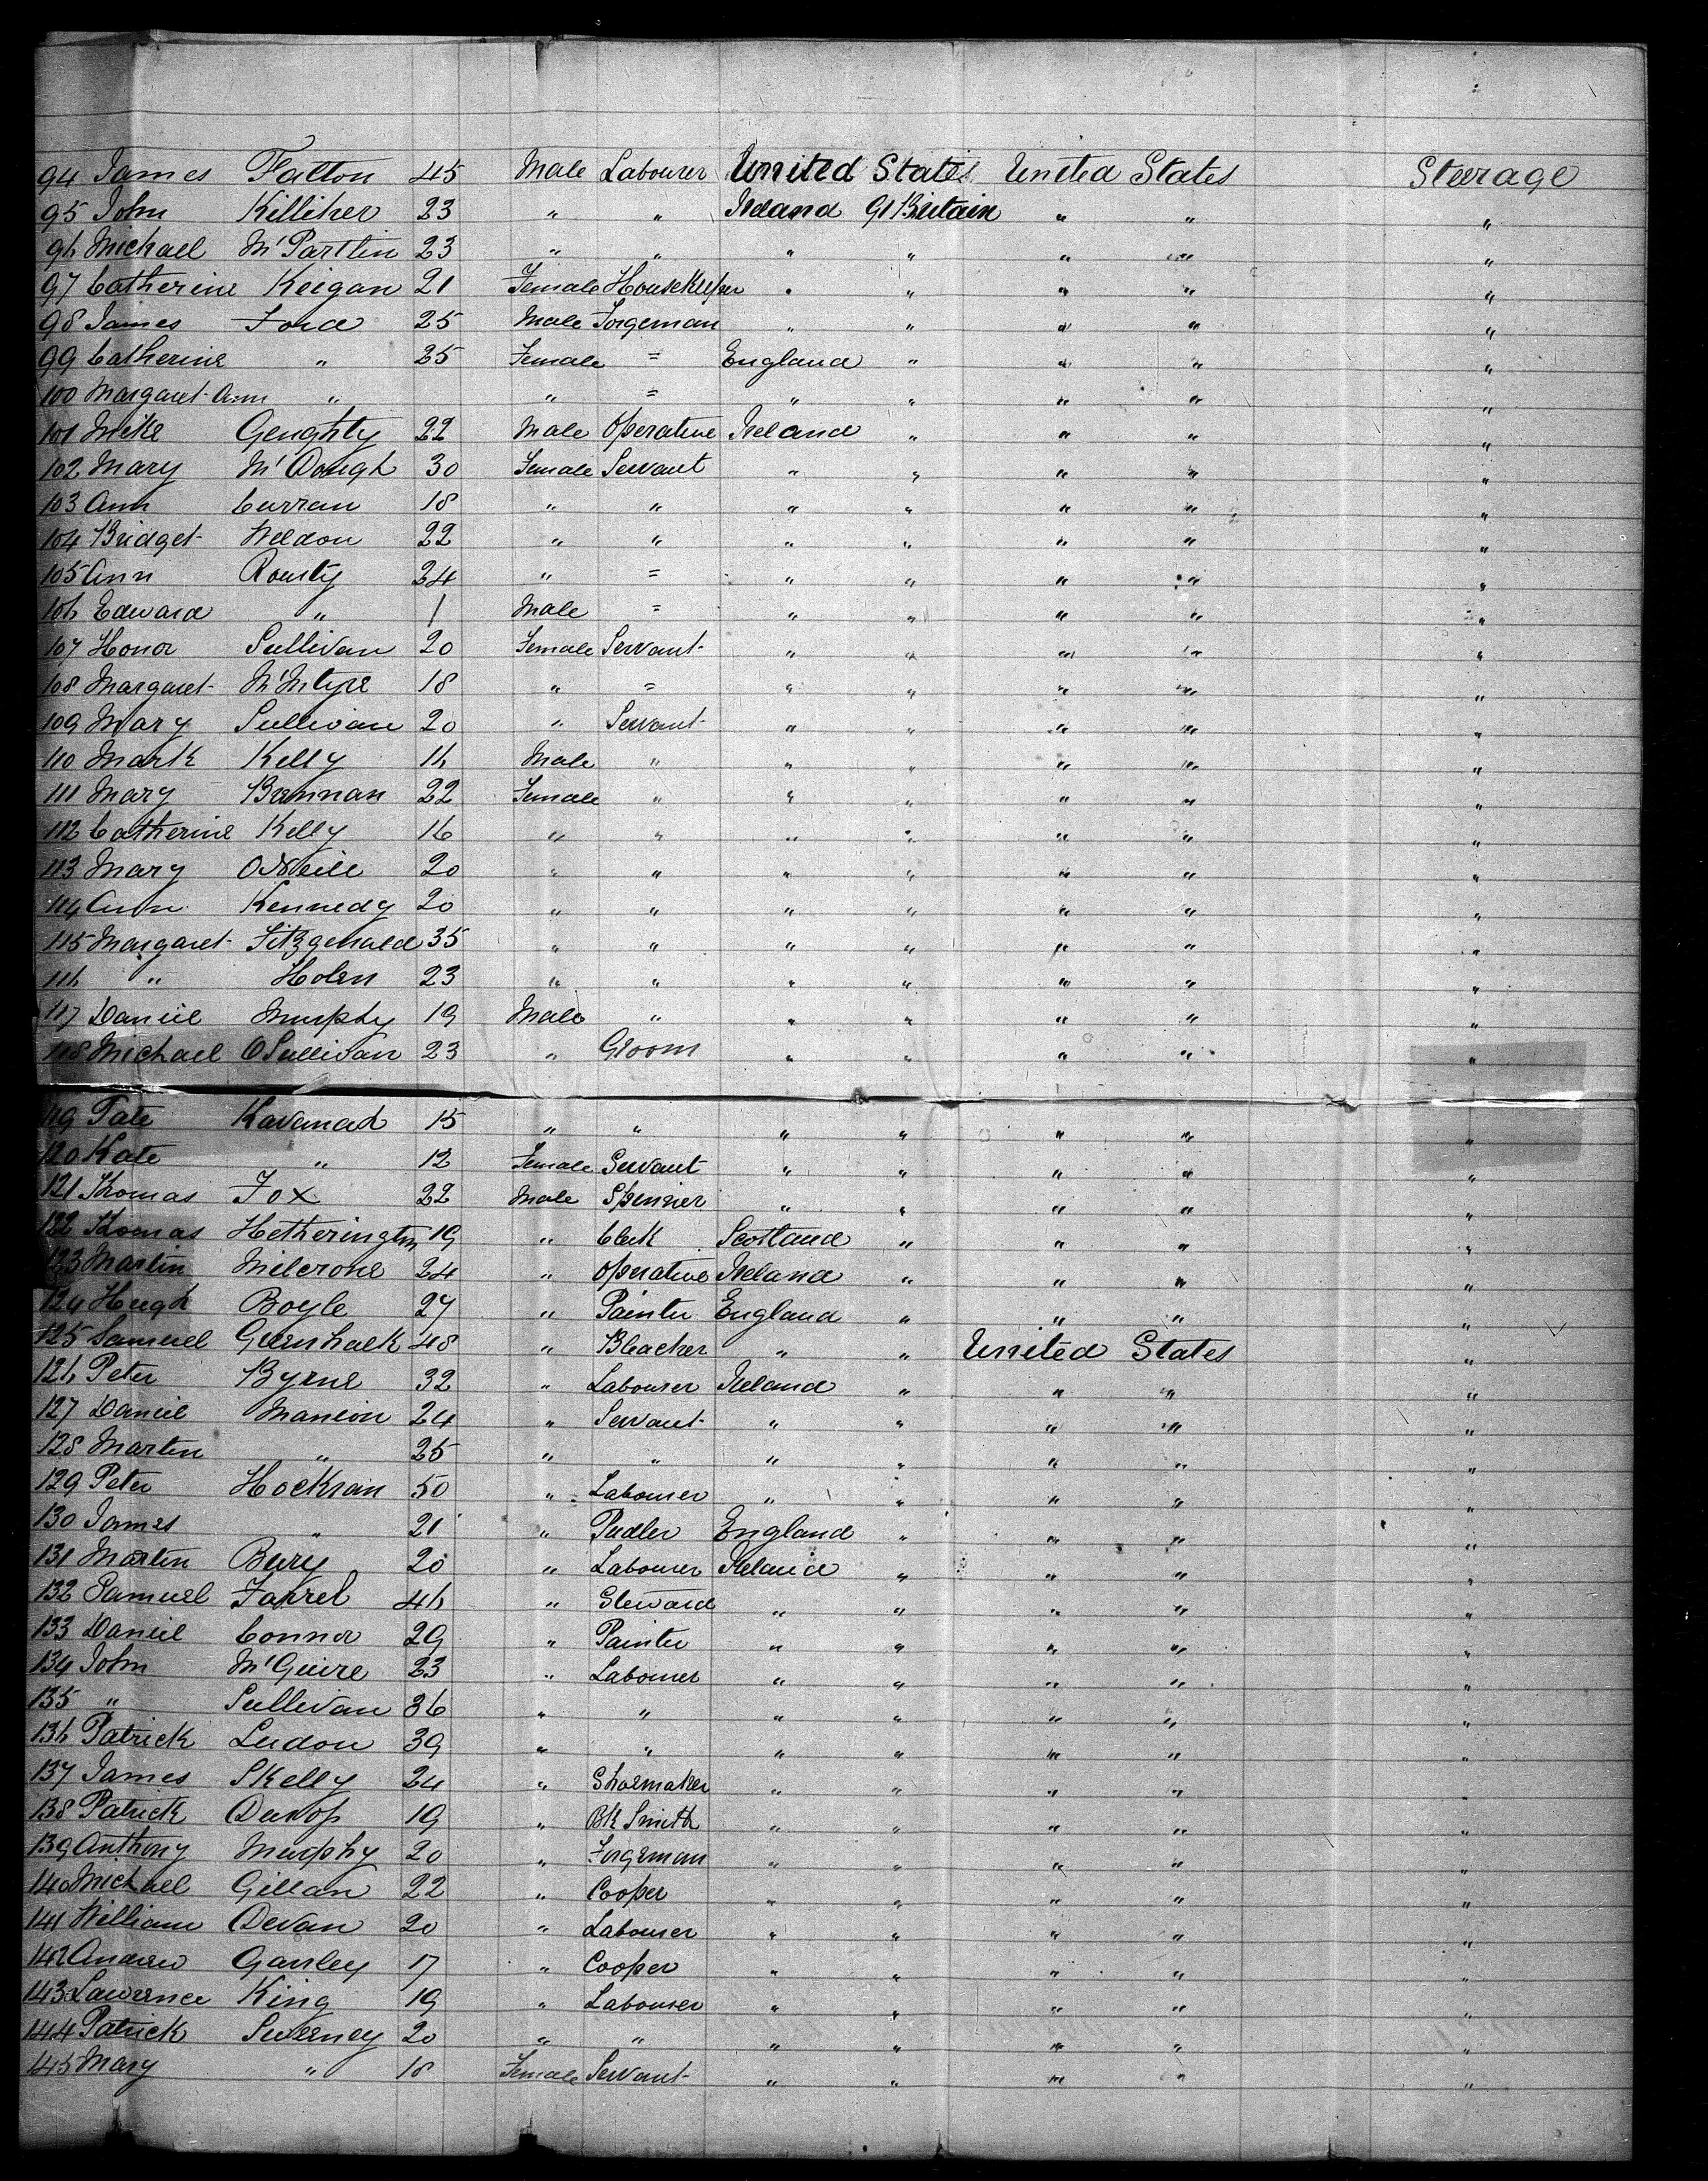 94 James Fallon 45 Male Labourer United States United States Steerage
95 John Killiher 23 " " Ireland Gt Britain " " "
96 Michael McPartlin 23 " " " " " " "
97 Catherine Keigan 21 Female Housekeeper " " " " "
98 James Ford 25 Male Forgeman " " " " "
99 Catherine " 25 Female = England " " " "
100 Margaret Ann " " = " " " " "
101 Mike Geughty 22 Male Operative Ireland " " " "
102 Mary McDough 30 Female Servant " " " " "
103 Ann Curran 18 " " " " " " "
104 Bridget Weldon 22 " " " " " " "
105 Ann Rousty 24 " = " " " " "
106 Edward " 1 Male = " " " " "
107 Honor Sullivan 20 Female Servant " " " " "
108 Margaret McIntyre 18 " = " " " " "
109 Mary Sullivan 20 " Servant " " " " "
110 Mark Kelly 16 Male " " " " " "
111 Mary Brannan 22 Female " " " " " "
112 Catherine Kelly 16 " " " " " " "
113 Mary ONeill 20 " " " " " " "
114 Ann Kennedy 20 " " " " " " "
115 Margaret Fitzgerald 35 " " " " " " "
116 " Holen 23 " " " " " " "
117 Daniel Murphy 19 Male " " " " " "
118 Michael OSullivan 23 " Groom " " " " "
119 Kavanah 15 " " " " " " "
120 Kate " 12 Female Servant " " " " "
121 Thomas Fox 22 Male Spinner " " " " "
122 Thomas Hetherington 19 " Clerk Scotland " " " "
123 Martin Milcrone 24 " Operative Ireland " " " "
124 Hugh Boyle 27 " Painter England " " " "
125 Samuel Greenhalk 48 " Bleacher " " United States "
126 Peter Byrne 32 " Labourer Ireland " " " "
127 Daniel Manion 24 " Servant " " " " "
128 Martin " 25 " " " " " " "
129 Peter Hockran 50 " Labourer " " " " "
130 James " 21 " Pudler England " " " "
131 Martin Bury 20 " Labourer Ireland " " " "
132 Samuel Farrel 46 " Steward " " " " "
133 Daniel Connor 29 " Painter " " " " "
134 John McGuire 23 " Labourer " " " " "
135 " Sullivan 36 " " " " " " "
136 Patrick Ludon 39 " " " " " " "
137 James Skelly 24 " Shoemaker " " " " "
138 Patrick 19 " Bk Smith " " " " "
139 Anthony Murphy 20 " Forgeman " " " " "
140 Michael Gillan 22 " Cooper " " " " "
141 William Devan 20 " Labourer " " " " "
142 Andrew Ganley 17 " Cooper " " " " "
143 Lawrence King 19 " Labourer " " " " "
144 Patrick Sweeney 20 " " " " " " "
145 Mary " 18 Female Servant " " " " "